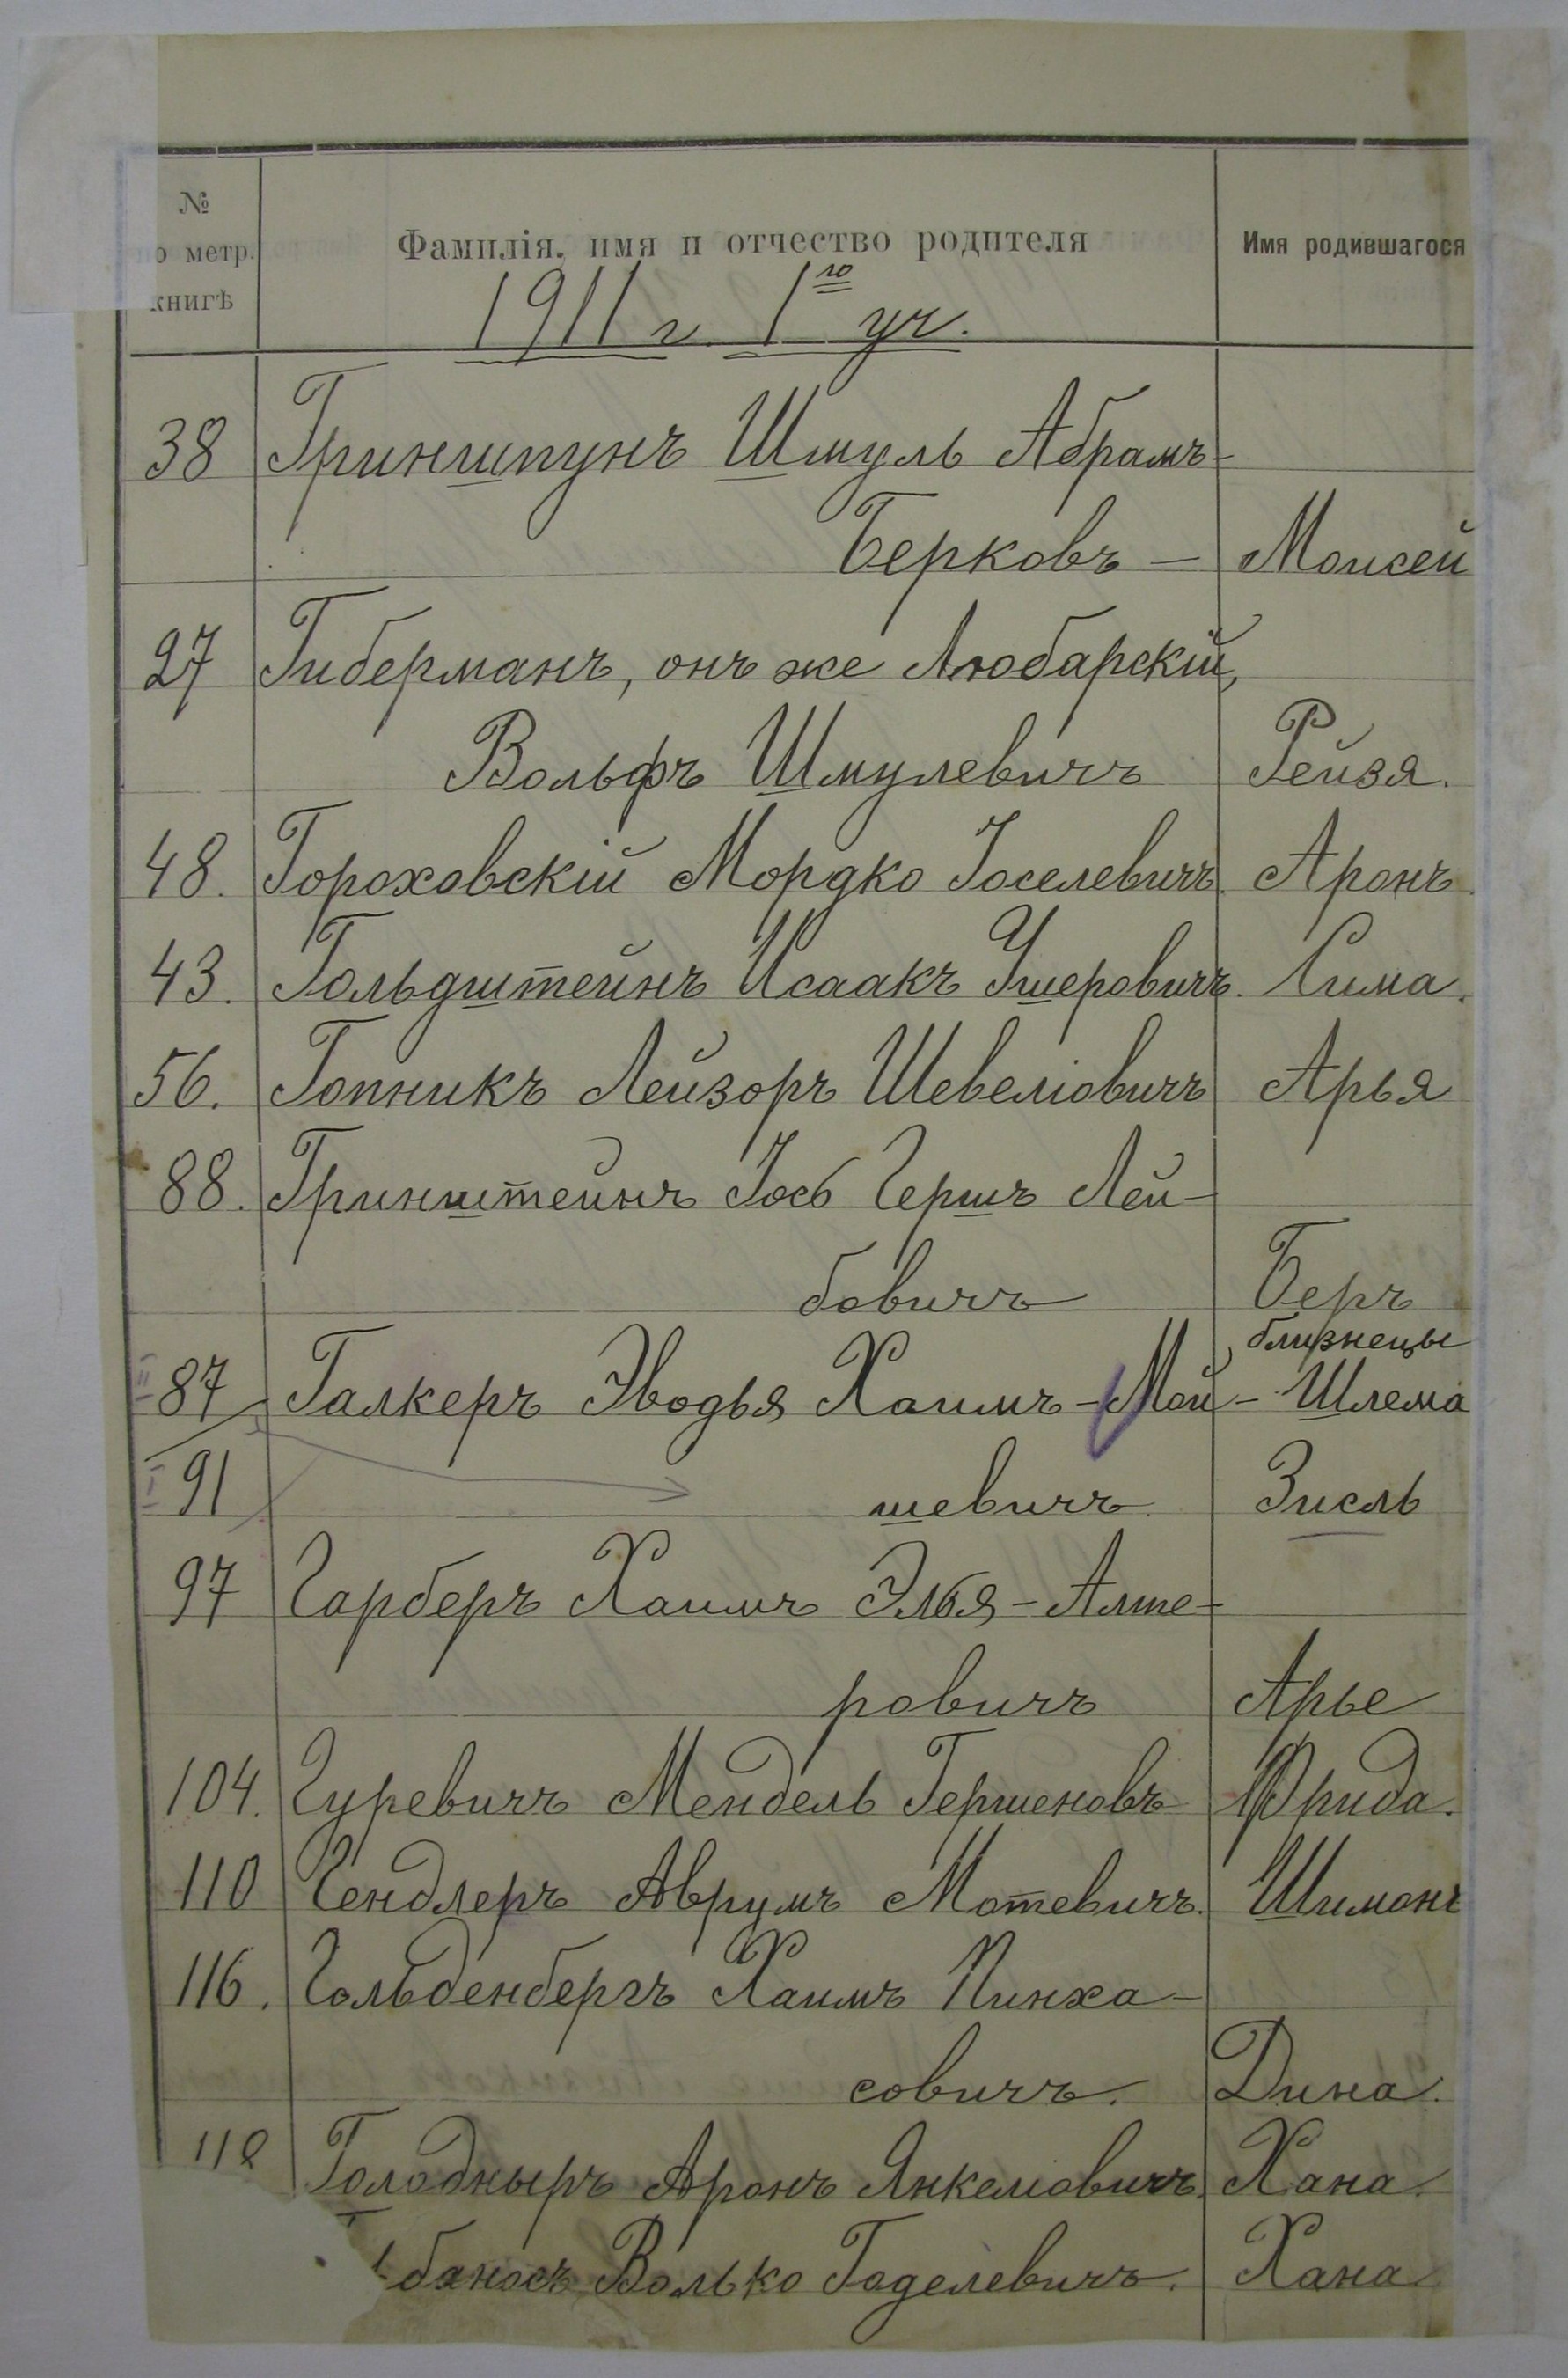 №
о метр.
книгѣ
Фамилія, имя и отчество родителя
Имя родившагося
1911 г. 1го уч.
38 Гриншпунъ Шмуль Абрамъ-
Берковъ — Моисей
27 Гиберманъ, онъ же Любарскій,
Вольфъ Шмулевичъ Рейзя.
48. Гороховскій Мордко Іоселевичъ. Аронъ.
43. Гольдштейнъ Исаакъ Ушеровичъ. Сима.
56. Гопникъ Лейзоръ Шевеліовичъ Арья
88. Гринштейнъ Іось Гершъ Лей-
бовичъ Беръ
близнецы
II 87 Галкеръ Эводья Хаимъ-Мой- Шлема
I 91 шевичъ. Зисль
97 Гарберъ Хаимъ Элья-Алте-
ровичъ Арье
104. Гуревичъ Мендель Гершеновъ Фрида.
110 Гендлеръ Аврумъ Мотевичъ. Шимонъ
116. Гольденбергъ Хаимъ Пинха-
совичъ. Дина.
Голодныръ Аронъ Янкеліовичъ. Хана.
Волько Годелевичъ. Хана